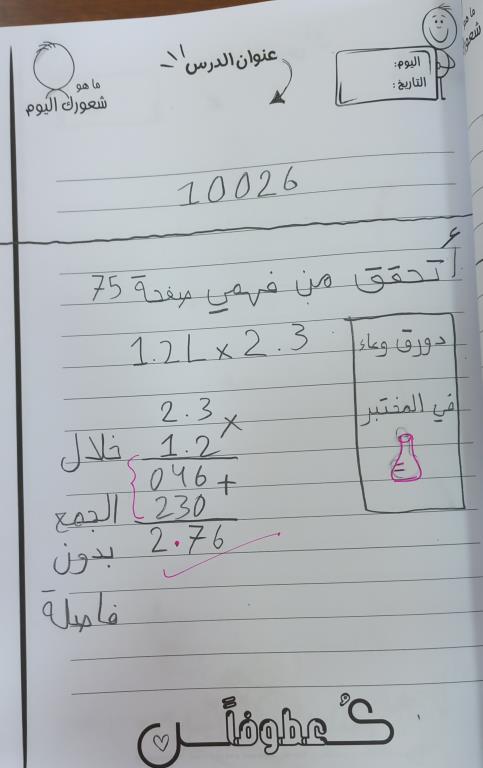 ما هو
شعورك اليوم
عنوان الدرس
اليوم:
التاريخ:
ما هو
10026
أتحقق من فهمي صفحة 75
1.2L × 2.3
دورق وعاء
في المختبر
2.3
×
1.2
046
+
230
2.76
خلال
الجمع
بدون
فاصلة